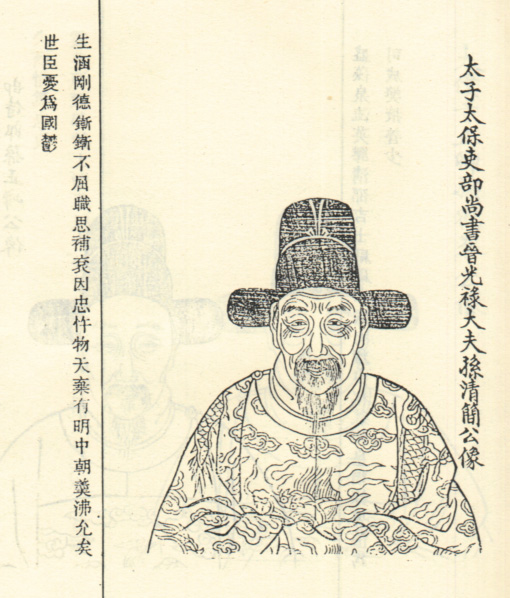 太子太保吏部尚書晉光祿大夫孫清簡公像
生涵剛德嶄嶄不屈職思補袞因忠忤物天棄有明中朝羹沸允矣
世臣憂爲國鬱